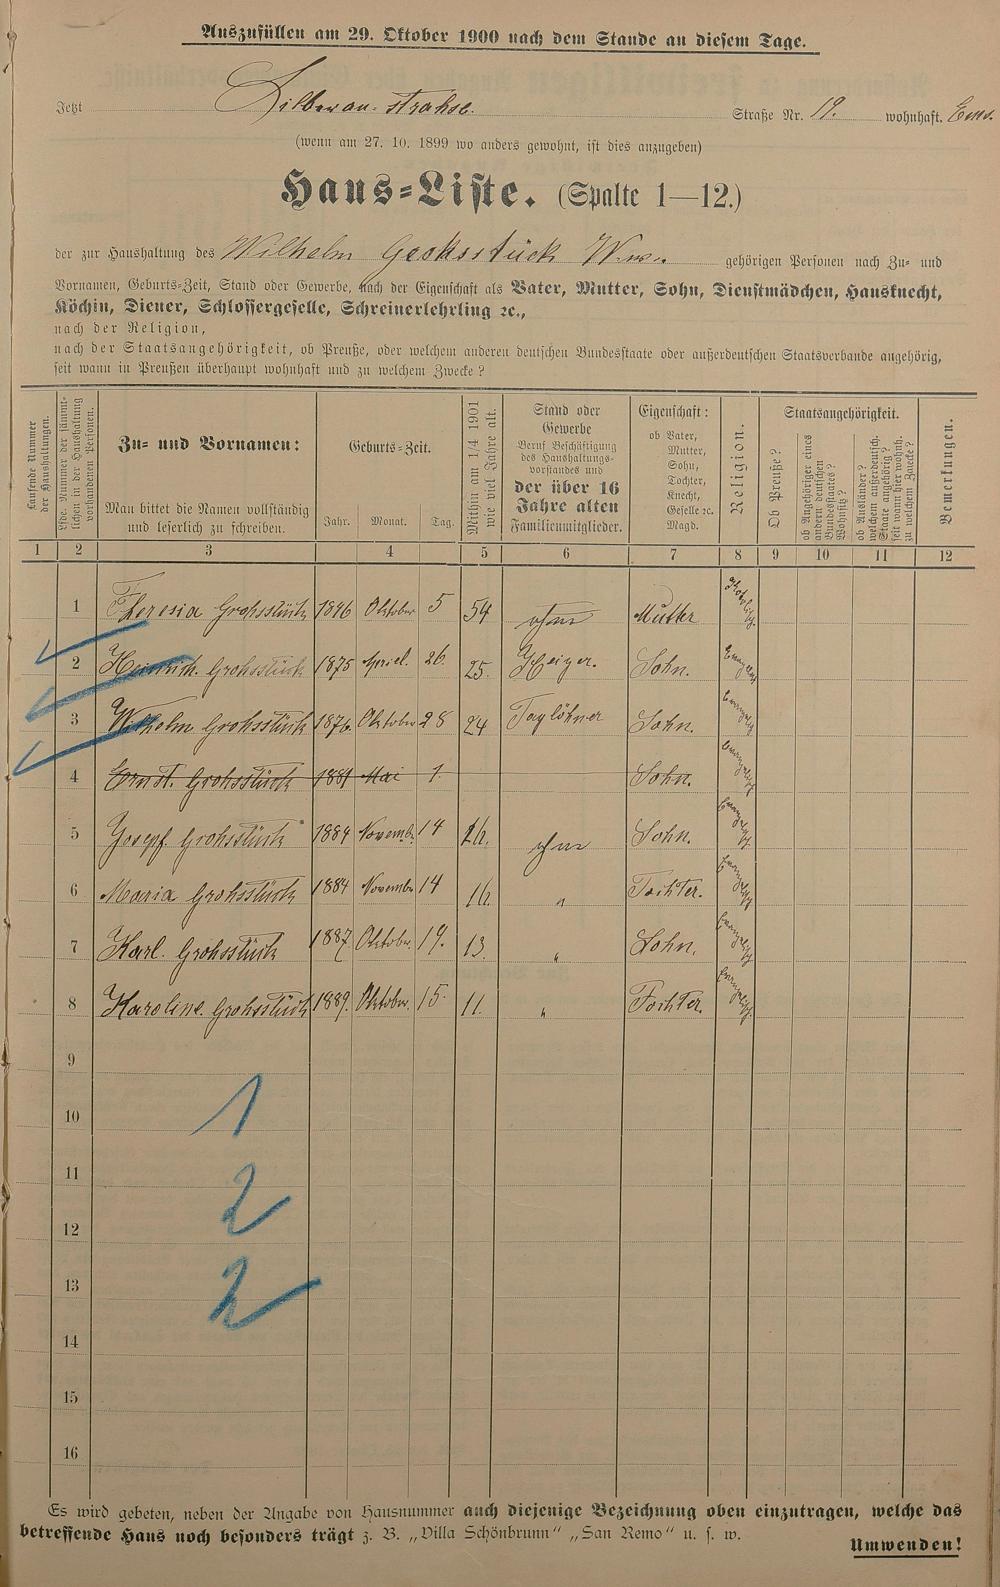 Auszufüllen am 29. Oktober 1900 nach dem Stande an diesem Tage.
Jetzt Silberau-straße. Straße Nr. 19. wohnhaft. Ems.
(wenn am 27. 10. 1899 wo anders gewohnt, ist dies anzugeben)
Haus-Liste. (Spalte 1—12.)
der zur Haushaltung des Wilhelm Grohsstück Wwe. gehörigen Personen nach Zu- und
Vornamen, Geburts-Zeit, Stand oder Gewerbe, nach der Eigenschaft als Vater, Mutter, Sohn, Dienstmädchen, Hausknecht,
Köchin, Diener, Schlossergeselle, Schreinerlehrling ꝛc.,
nach der Religion,
nach der Staatsangehörigkeit, ob Preuße, oder welchem anderen deutschen Bundesstaate oder außerdeutschen Staatsverbande angehörig,
seit wann in Preußen überhaupt wohnhaft und zu welchem Zwecke?
Laufende Nummer der Haushaltungen.
Lfde. Nummer der sämmtlichen in der Haushaltung vorhandenen Personen.
Zu- und Vornamen:
Man bittet die Namen vollständig
und leserlich zu schreiben.
Geburts-Zeit.
Jahr. Monat. Tag.
Mithin am 1/4 1901 wie viel Jahre alt.
Stand oder
Gewerbe
Beruf Beschäftigung
des Haushaltungs-
vorstandes und
der über 16
Jahre alten
Familienmitglieder.
Eigenschaft:
ob Vater,
Mutter,
Sohn,
Tochter,
Knecht,
Geselle ꝛc.
Magd.
Religion.
Staatsangehörigkeit.
Ob Preuße?
ob Angehöriger eines andern deutschen Bundesstaates? Wohnsitz?
ob Ausländer? welchem außerdeutsch. Staate angehörig? seit wann hier wohnh. zu welchem Zwecke?
Bemerkungen.
1 2 3 4 5 6 7 8 9 10 11 12
1 Theresia Grohsstück 1846 Oktober 5 54 ohne Mutter Katholisch.
2 Heinrich. Grohsstück 1875 April. 26. 25. Heizer. Sohn. Evangelisch
3 Wilhelm Grohsstück 1876. Oktober 28 24 Taglöhner Sohn. Evangelisch
4 Ernst. Grohsstück 1881 Mai 1. Sohn. Evangelisch
5 Josepf. Grohsstück 1884 Novembr. 14 16. ohne Sohn. Evangelisch.
6 Maria Grohsstück 1884 November 14 16. " Tochter. Evangelisch
7 Karl. Grohsstück 1887. Oktober. 19. 13. " Sohn. Evangelisch
8 Karoline. Grohsstück 1889. Oktober. 15. 11. " Tochter. Evangelisch.
9
10
1
11
2
12
13
2
14
15
16
Es wird gebeten, neben der Angabe von Hausnummer auch diejenige Bezeichnung oben einzutragen, welche das
betreffende Haus noch besonders trägt z. B. „Villa Schönbrunn“ „San Remo“ u. s. w.
Umwenden!